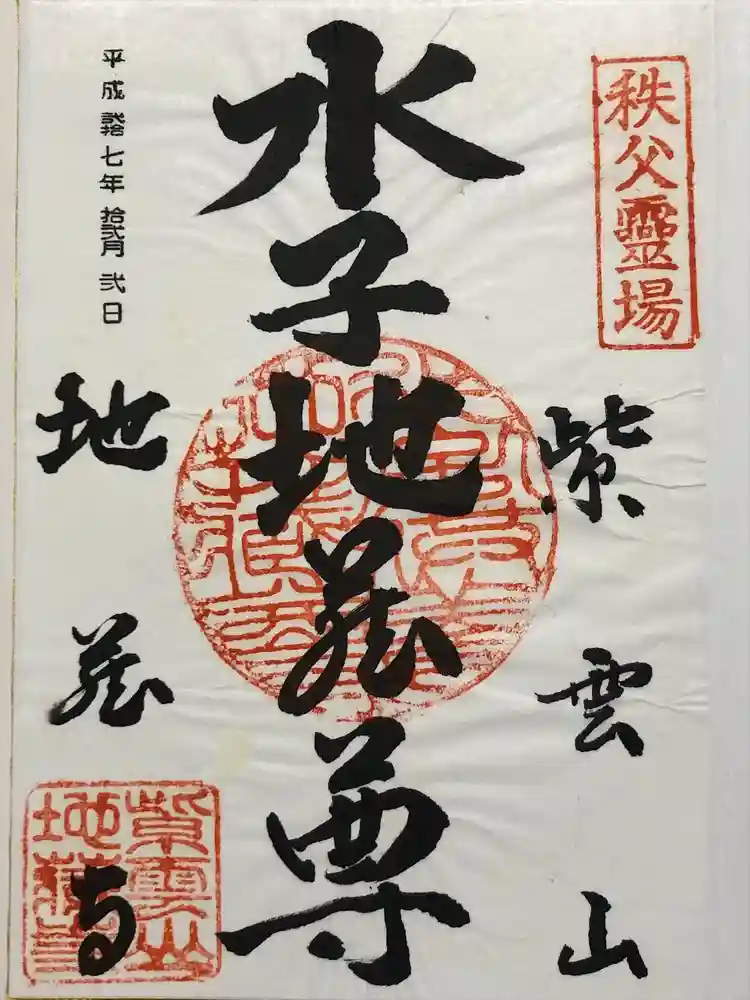 秩父靈場
紫雲山
水子地蔵尊
地蔵寺
平成貳拾七年拾弐月弐日
紫雲山
地蔵寺